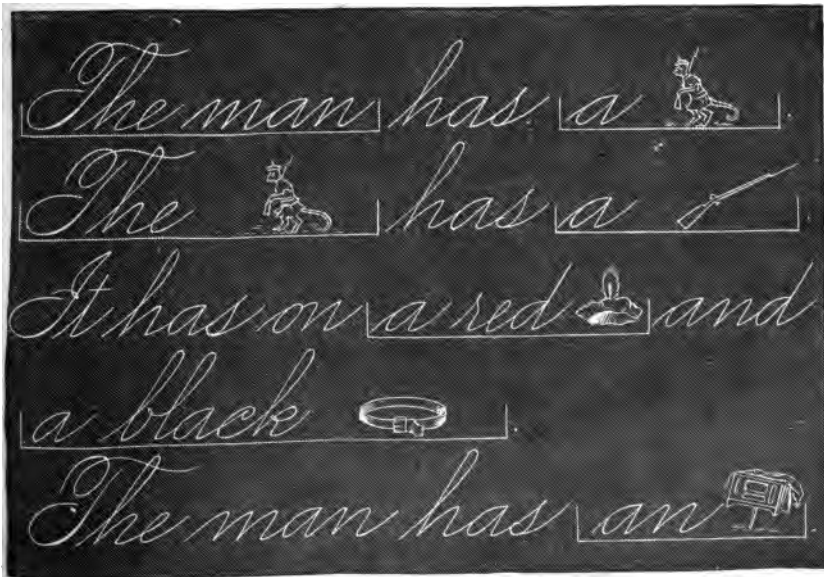 The man has a .
The has a
It has on a red and
a black .
The man has an